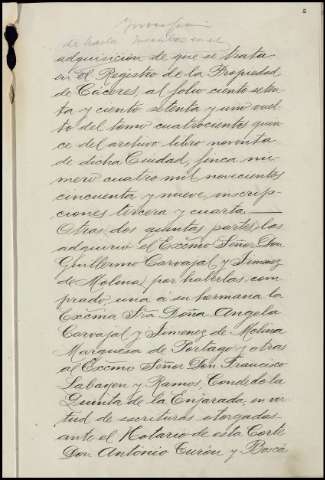 adquisición de que se trata
en el Registro de la Propiedad
de Cáceres, al folio ciento seten
ta y ciento setenta y uno vuel
to del tomo cuatrocientos quin
ce del archivo libro noventa
de dicha Ciudad, finca nu
mero cuatro mil novecientos
cincuenta y nueve, inscrip-
ciones tercera y cuarta.
Otras dos quintas partes las
adquirió el Excmo Señor Don
Guillermo Carvajal y Jimenez
de Molina por haberlas com
prado, una a su hermana la
Excma Sra Doña Angela
Carvajal y Jimenez de Molina
Marquesa de Portago y otras
al Excmo Señor Don Francisco
Labayen y Ramos, Conde de la
Quinta de la Enjarada, en vir
tud de escrituras otorgadas
ante el Notario de esta Corte
Don Antonio Turón y Boscá